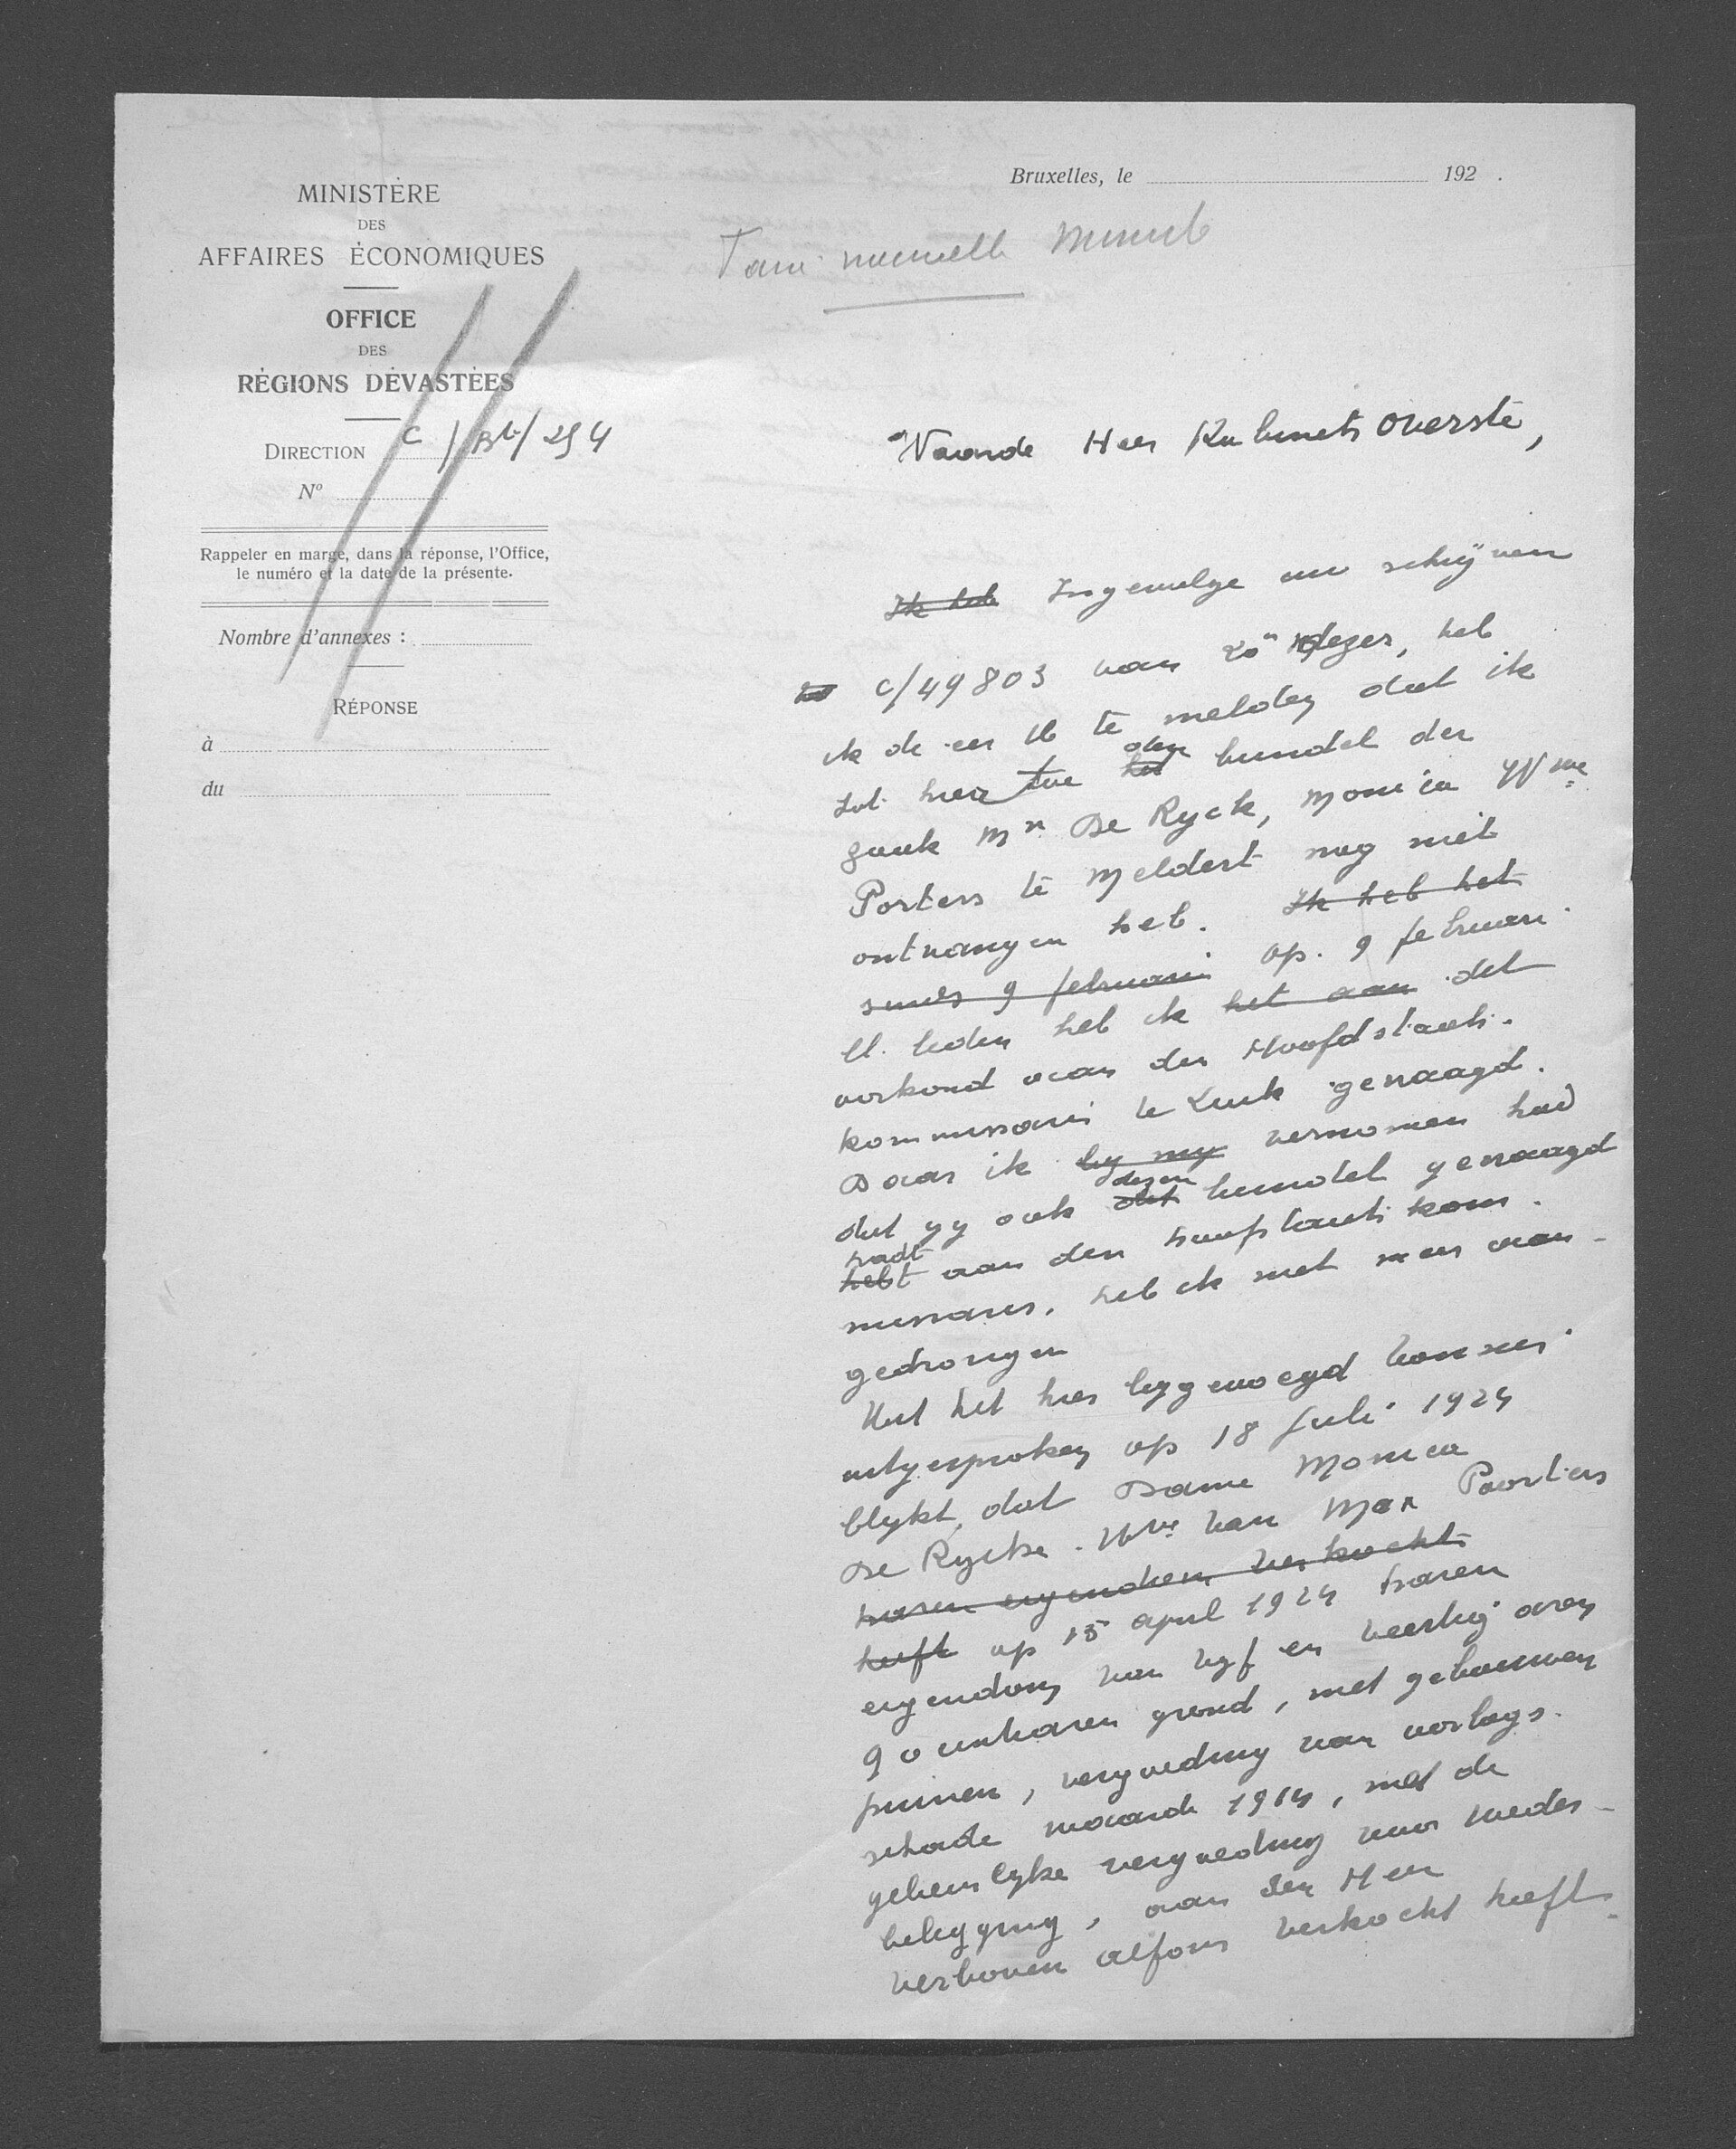 MINISTÈRE
DES
AFFAIRES ÉCONOMIQUES
OFFICE
DES
RÉGIONS DÉVASTÉES
DIRECTION C/Bt/254
N°
Rappeler en marge, dans la réponse, l'Office,
le numéro et la date de la présente.
Nombre d'annexes :
RÉPONSE
à
du
Bruxelles, le 192 .
Waarde Heer Kabinets Overste,
Ik heb Ingevolge uw schrijven
C/49803 van 20n dezer, heb
ik de eer U te melden dat ik
tot hier toe het den bundel der
zaak Mn De Ryck, Monica Wwe
Porters te Meldert nog niet
ontvangen heb. Ik heb het
sinds 9 februari op 9 februari
ll. leden heb ik het aan det
oorkond aan den Hoofdstaats-
kommissaris te Luik gevraagd.
Daar ik by my vernomen had
dat gy ook dit dezen bundel gevraagd
hebt hadt aan den hoofstaatskom-
missaris, heb ik niet meer aan-
gedrongen
Uit het hier bygevoegd vonnis
uitgesproken op 18 Juli 1924
blykt, dat Dame Monica
De Rycke Wwe van Max Poorters
haren eigendom verkocht
heeft op 15 april 1924 haren
eigendom van vyf en veertig aren
90 centiaren grond, met gebouwen
puinen, vergoeding van oorlogs-
schade waarde 1914, met de
geheimlyke vergoeding voor weder-
belegging, aan den Heer
Verboven Alfons verkocht heeft